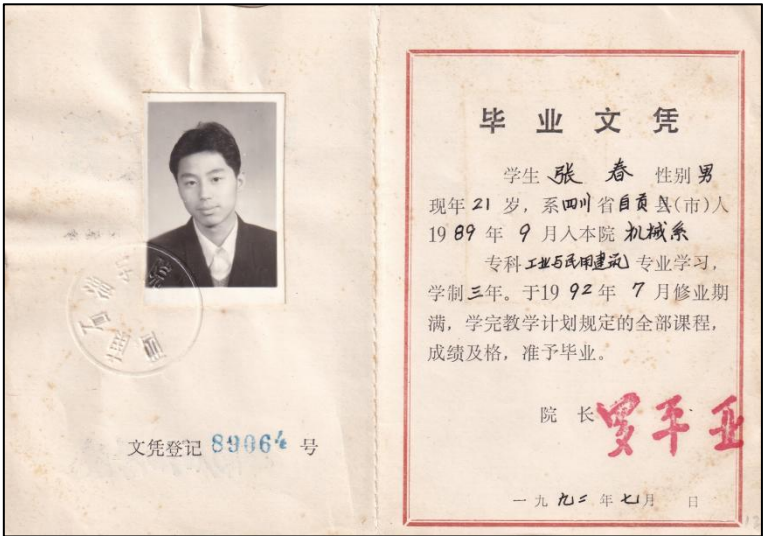 文凭登记 89064 号
毕业文凭
学生 张春 性别 男
现年 21 岁，系四川省自贡县(市)人
1989 年 9 月入本院 机械系
专科 工业与民用建筑 专业学习，
学制三年。于1992年 7 月修业期
满，学完教学计划规定的全部课程，
成绩及格，准予毕业。
院 长 罗平亚
一九九二年七月 日